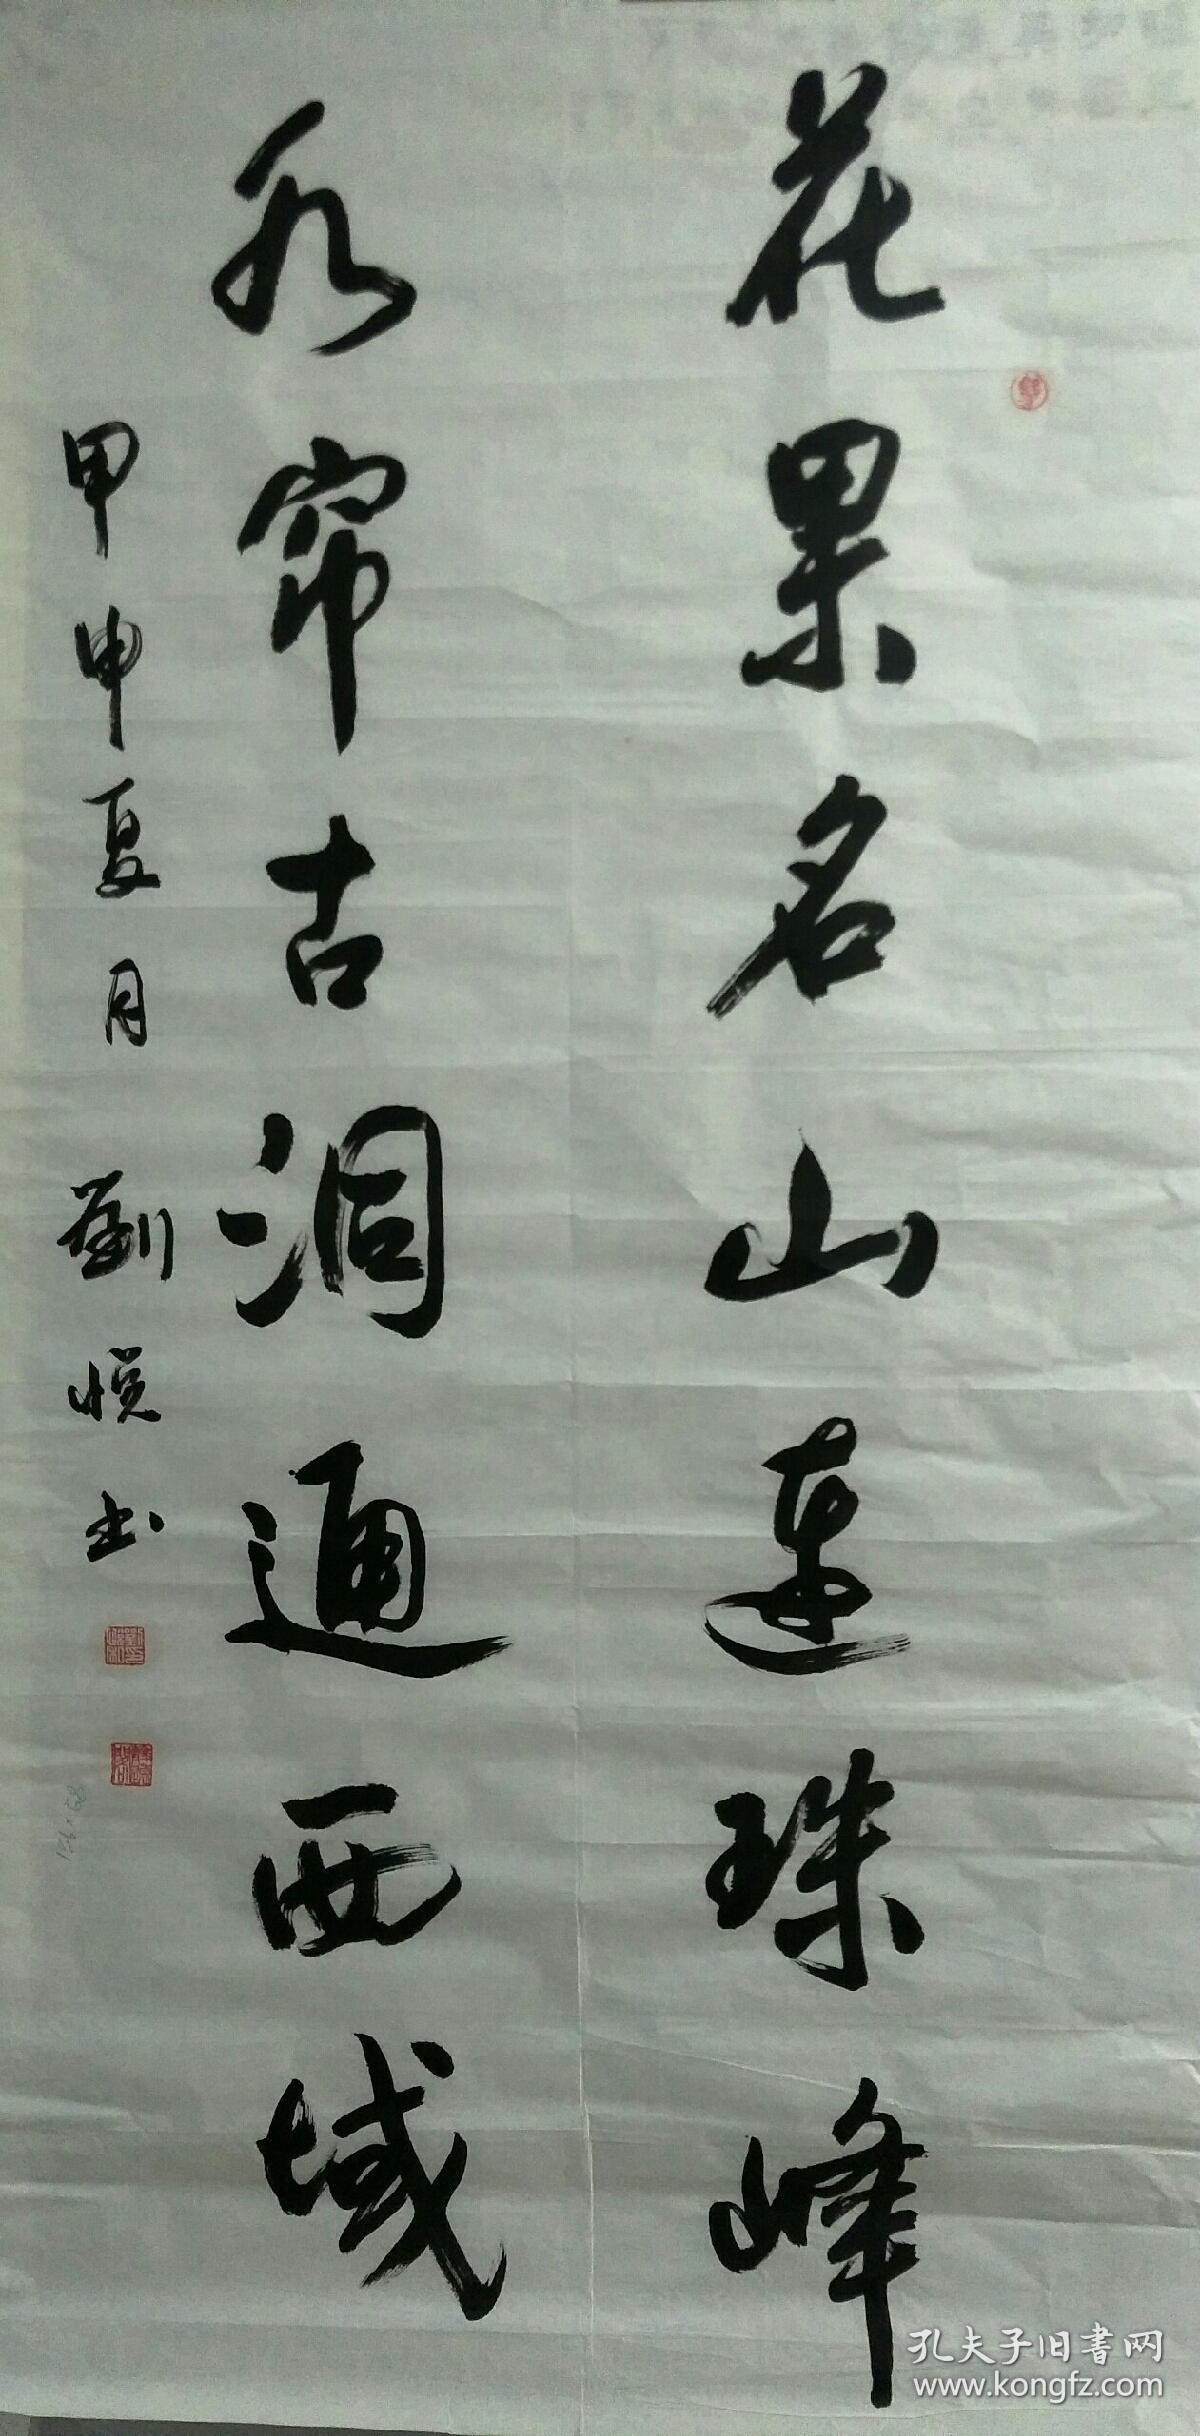 花果名山連珠峰
水帘古洞通西域
甲申夏月 劉悦书
孔夫子旧書网
www.kongfz.com